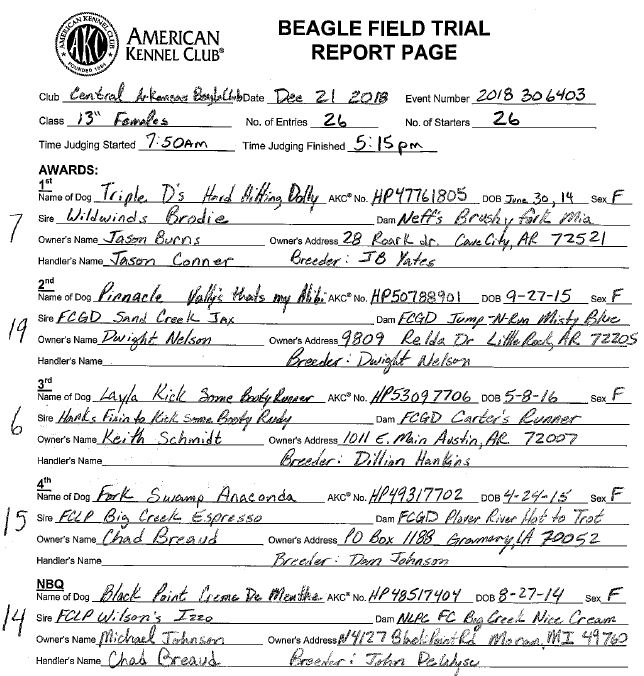 AKC
FOUNDED 1884
AMERICAN KENNEL CLUB®
BEAGLE FIELD TRIAL
REPORT PAGE
Club Central Arkansas Beagle Club Date Dec 21 2018 Event Number 2018306403
Class 13" Females No. of Entries 26 No. of Starters 26
Time Judging Started 7:50AM Time Judging Finished 5:15pm
AWARDS:
1st
Name of Dog Triple D's Hard Hitting Dolly AKC® No. HP47761805 DOB June 30, 14 Sex F
7 Sire Wildwinds Brodie Dam Neff's Brushy Fork Mia
Owner's Name Jason Burns Owner's Address 28 Roark dr. Cave City, AR 72521
Handler's Name Jason Conner Breeder: JB Yates
2nd
Name of Dog Pinnacle Vally's thats my Alibi AKC® No. HP50788901 DOB 9-27-15 Sex F
19 Sire FCGD Sand Creek Jax Dam FCGD Jump-N-Run Misty Blue
Owner's Name Dwight Nelson Owner's Address 9809 Relda Dr Little Rock, AR 72205
Handler's Name Breeder: Dwight Nelson
3rd
Name of Dog Layla Kick Some Booty Runner AKC® No. HP53097706 DOB 5-8-16 Sex F
6 Sire Hanks Fixin to Kick Some Booty Rudy Dam FCGD Carter's Runner
Owner's Name Keith Schmidt Owner's Address 1011 E. Main Austin, AR 72007
Handler's Name Breeder: Dillian Hankins
4th
Name of Dog Fork Swamp Anaconda AKC® No. HP49317702 DOB 4-24-15 Sex F
15 Sire FCLP Big Creek Espresso Dam FCGD Plover River Hot to Trot
Owner's Name Chad Breaud Owner's Address PO Box 1188 Grammercy, LA 70052
Handler's Name Breeder: Dan Johnson
NBQ
Name of Dog Black Point Creme De Menthe AKC® No. HP48517404 DOB 8-27-14 Sex F
14 Sire FCLP Wilson's Izzo Dam NLPC FC Big Creek Nice Cream
Owner's Name Michael Johnson Owner's Address N4127 Black Point Rd Moran, MI 49760
Handler's Name Chad Breaud Breeder: John